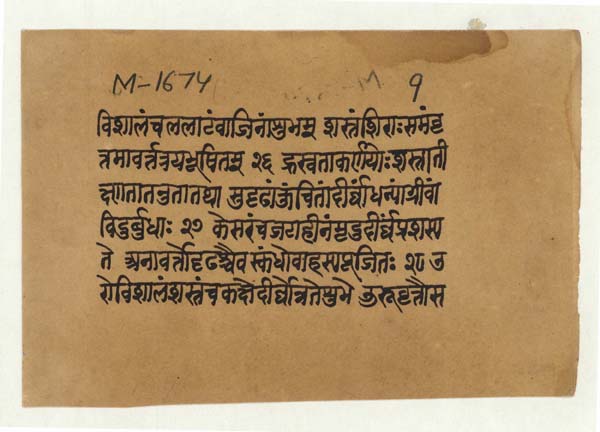 M-1674 M 9
विशालंचललाटंवाजिनांशुभम् शस्तंशिराःसमंवृ
त्तमावर्त्तत्रयभूषितम् २६ ह्रस्वताकर्णयोःशस्ताती
क्ष्णतातनुतातथा सुदृढांकुंचितांदीर्घांधन्यांग्रीवां
विदुर्बुधाः २७ केसरंचजटाहीनंमृदुदीर्घंप्रशस्य
ते अनावर्त्तोदृढश्चैवस्कंधोवाहस्यपूजितः २८ उ
रोविशालंशस्तंच